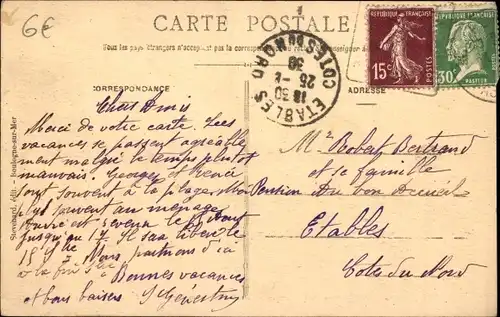 6€
CARTE POSTALE
Tous les pays étrangers n'acceptent pas la correspondance
CORRESPONDANCE
ADRESSE
ETABLES
18 30
25
30
COTES DU NORD
RÉPUBLIQUE FRANÇAISE
15c
POSTES
RÉPUBLIQUE FRANÇAISE
30c
PASTEUR
Chers Amis
Merci de votre carte. Les
vacances se passent agréable
ment malgré le temps plutôt
mauvais. Georges et Renée
sont souvent à la plage. Moi
plus souvent au ménage
est revenu le
jusqu'au 17. Il sera libéré le
18. Nous partirons d'ici
à la fin
Bonnes vacances
et bons baisers
Mr Robert Bertrand
et sa famille
Pension du bon Accueil
Etables
Cotes du Nord
Stévenard, édit. Boulogne-sur-Mer